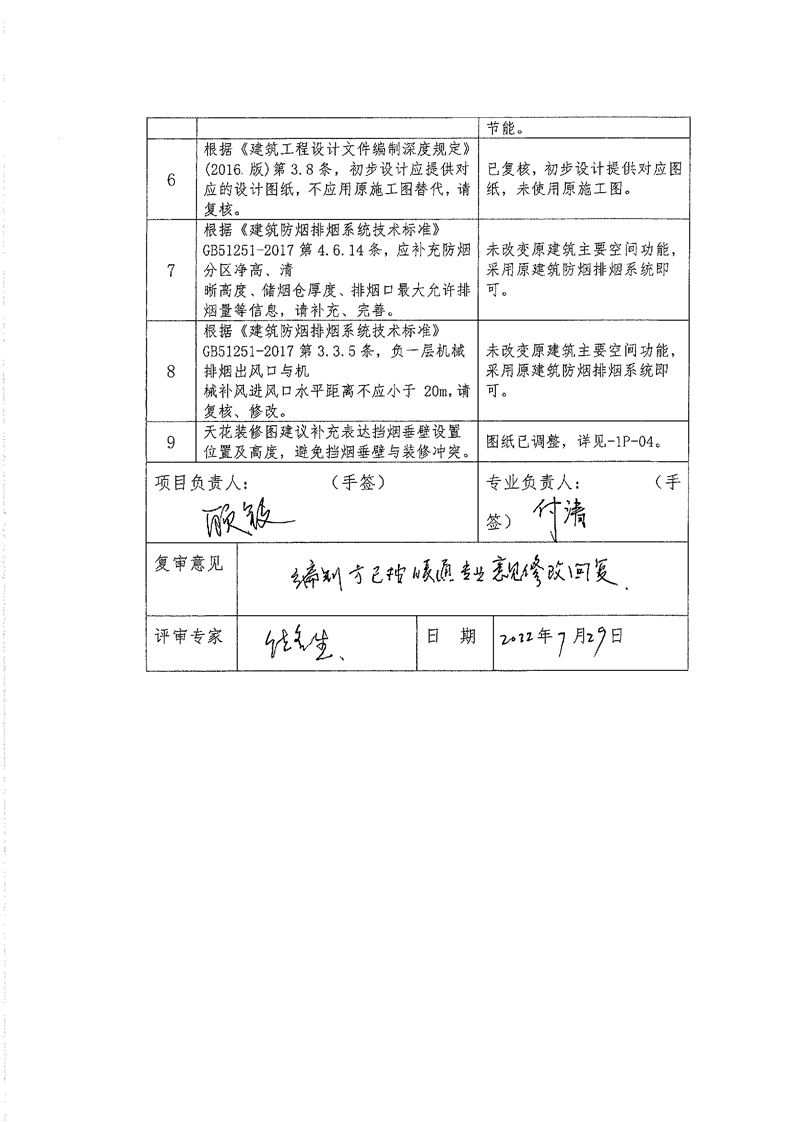 节能。
6
根据《建筑工程设计文件编制深度规定》
(2016 版)第 3.8 条，初步设计应提供对
应的设计图纸，不应用原施工图替代，请
复核。
已复核，初步设计提供对应图
纸，未使用原施工图。
7
根据《建筑防烟排烟系统技术标准》
GB51251-2017 第 4.6.14 条，应补充防烟
分区净高、清
晰高度、储烟仓厚度、排烟口最大允许排
烟量等信息，请补充、完善。
未改变原建筑主要空间功能，
采用原建筑防烟排烟系统即
可。
8
根据《建筑防烟排烟系统技术标准》
GB51251-2017 第 3.3.5 条，负一层机械
排烟出风口与机
械补风进风口水平距离不应小于 20m,请
复核、修改。
未改变原建筑主要空间功能，
采用原建筑防烟排烟系统即
可。
9
天花装修图建议补充表达挡烟垂壁设置
位置及高度，避免挡烟垂壁与装修冲突。
图纸已调整，详见-1P-04。
项目负责人： （手签）
顾敏
专业负责人： （手
签） 付涛
复审意见
编制方已按暖通专业意见修改回复.
评审专家
日 期
2022年7月29日